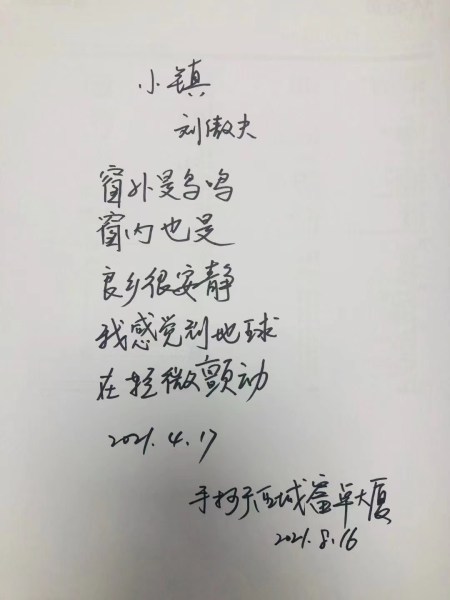 小镇
刘傲夫
窗外是鸟鸣
窗内也是
良乡很安静
我感觉到地球
在轻微颤动
2021.4.17
手抄于西城富卓大厦
2021.8.16